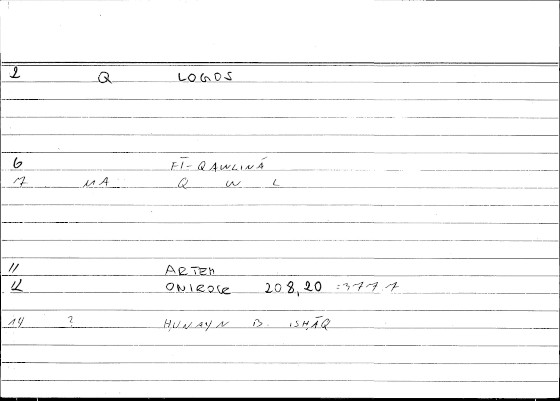 2 Q LOGOS
6 FĪ-QAWLINĀ
7 MA Q W L
11 ARTEM
12 ONIROCR 208,20 =377 7
14 ? ḤUNAYN B. ISḤĀQ